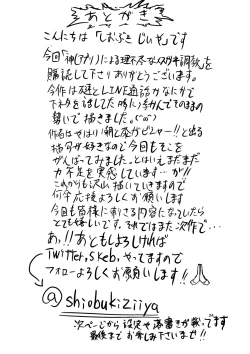 あとがき
こんにちは「しおぶきじいや」です
今回「神(アプリ)による理不尽なメスガキ調教」を
購読して下さりありがとうございます。
今作は友達とLINE通話かなにかで
下ネタを話してた時に浮んでそのままの
勢いで描きました。
作者はやはり潮と液がピシャー!!と出る
描写が好きなので今回もそこを
がんばってみました。とはいえまだまだ
力不足を実感しています…が!!
これからも沢山描いていきますので
何卒応援よろしくお願いします
今回も皆様に刺さる内容になっていたら
とても嬉しいです。それではまた次作で…
あ,!!あともしよければ
Twitter,Skeb,やってますので
フォローよろしくお願いします!!
@shiobukiziiya
次ページから設定や落書きが載ってます
最後までお楽しみ下さいませ!!